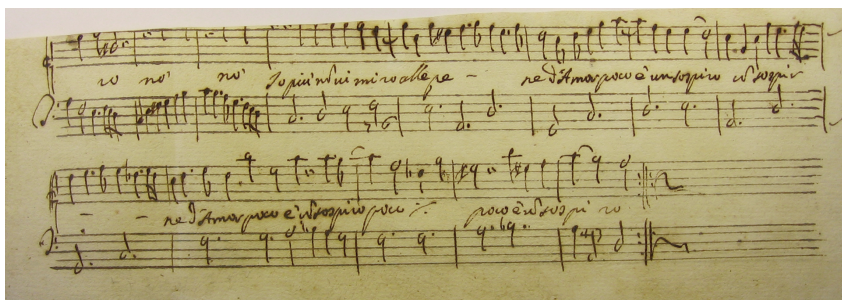 ro no' no' Io più in lui miro alle pe - ne d'Amor poco è un sospiro ũ sospir
- - ne d'Amor poco è ũ sospiro poco :/: poco è ũ sospi ro